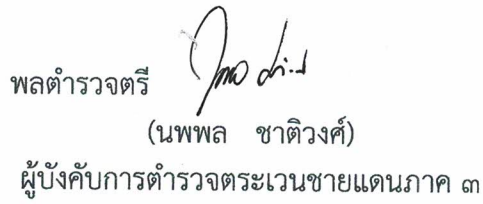 พลตำรวจตรี
(นพพล ชาติวงศ์)
ผู้บังคับการตำรวจตระเวนชายแดนภาค ๓